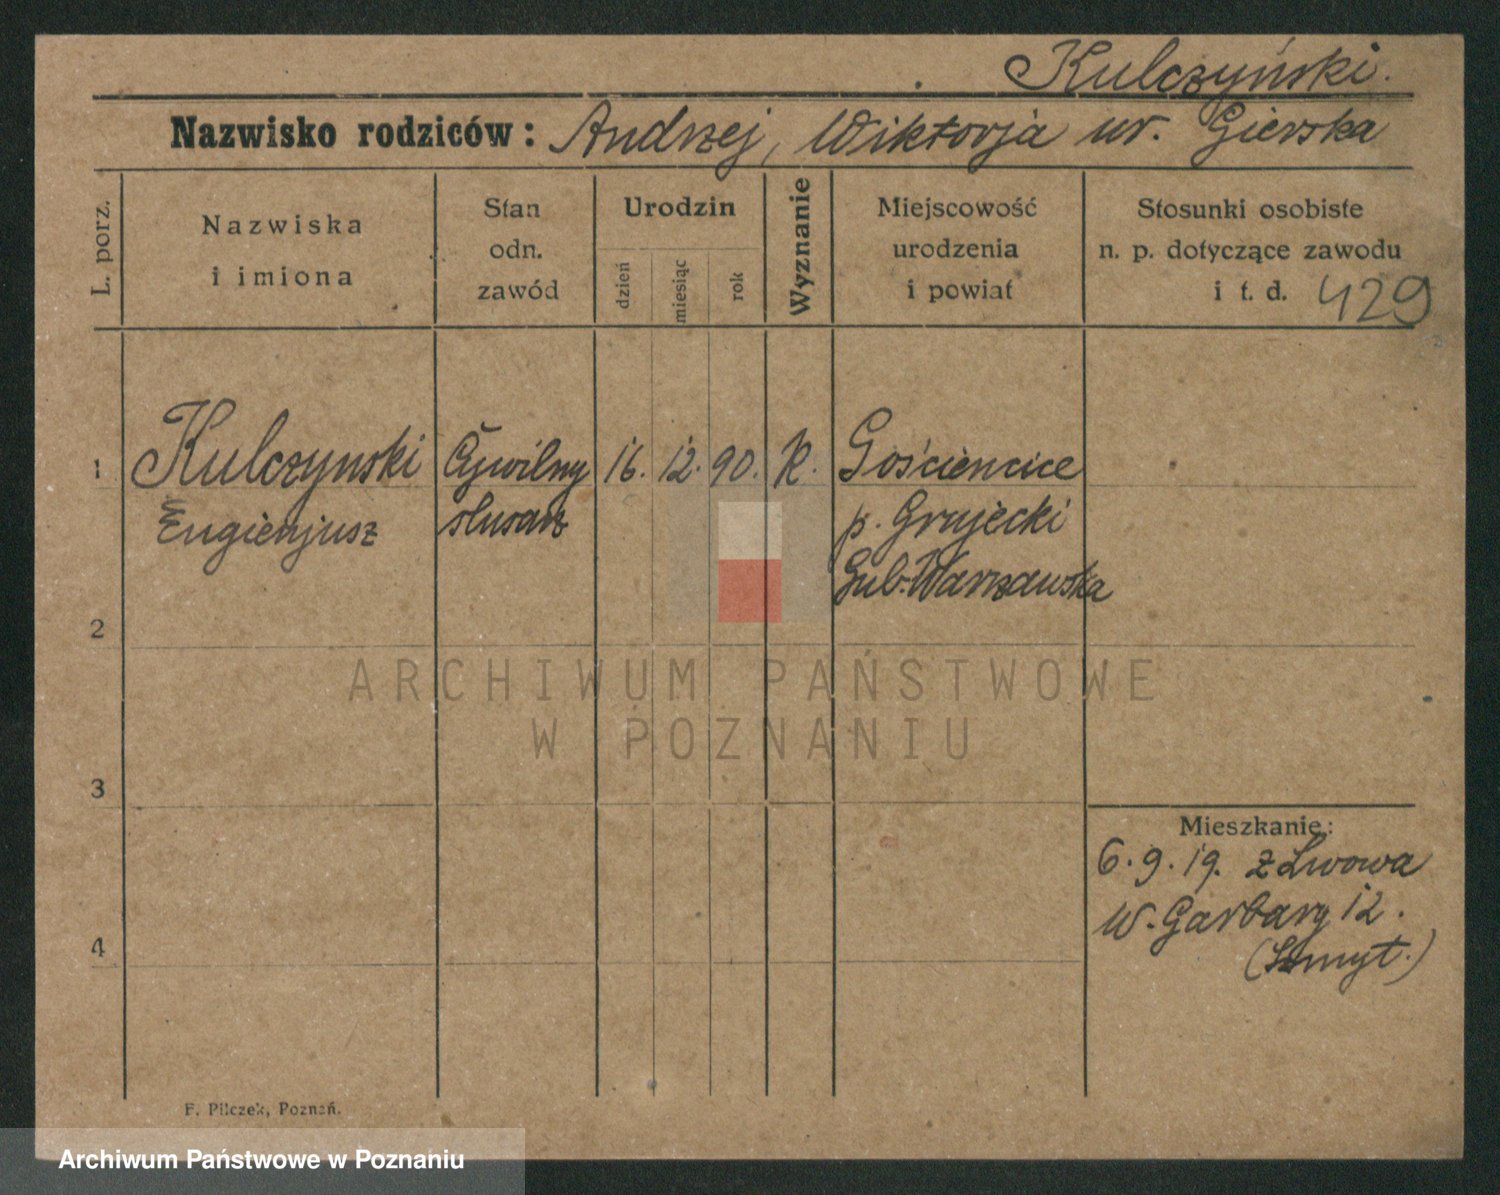 Kulczyński.
Nazwisko rodziców: Andrzej, Wiktorja ur. Gierska
L. porz.
Nazwiska
i imiona
Stan
odn.
zawód
Urodzin
dzień
miesiąc
rok
Wyznanie
Miejscowość
urodzenia
i powiat
Stosunki osobiste
n. p. dotyczące zawodu
i t. d. 429
1 Kulczynski Cywilny 16. 12. 90. K. Gościencice
Eugienjusz slusarz p. Grujecki
Gub. Warszawska
2
3
4
Mieszkanie:
6.9.19. z Lwowa
W. Garbary 12.
F. Pilczek, Poznań.
ARCHIWUM PAŃSTWOWE
W POZNANIU
Archiwum Państwowe w Poznaniu